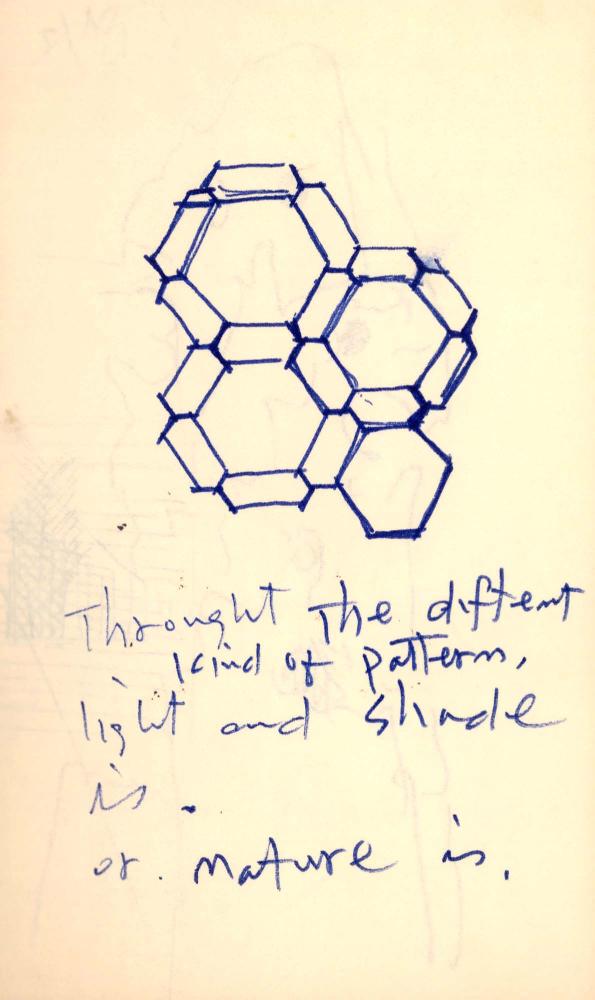 Throught The diftent
kind of pattern,
light and shade
is.
or. nature is.